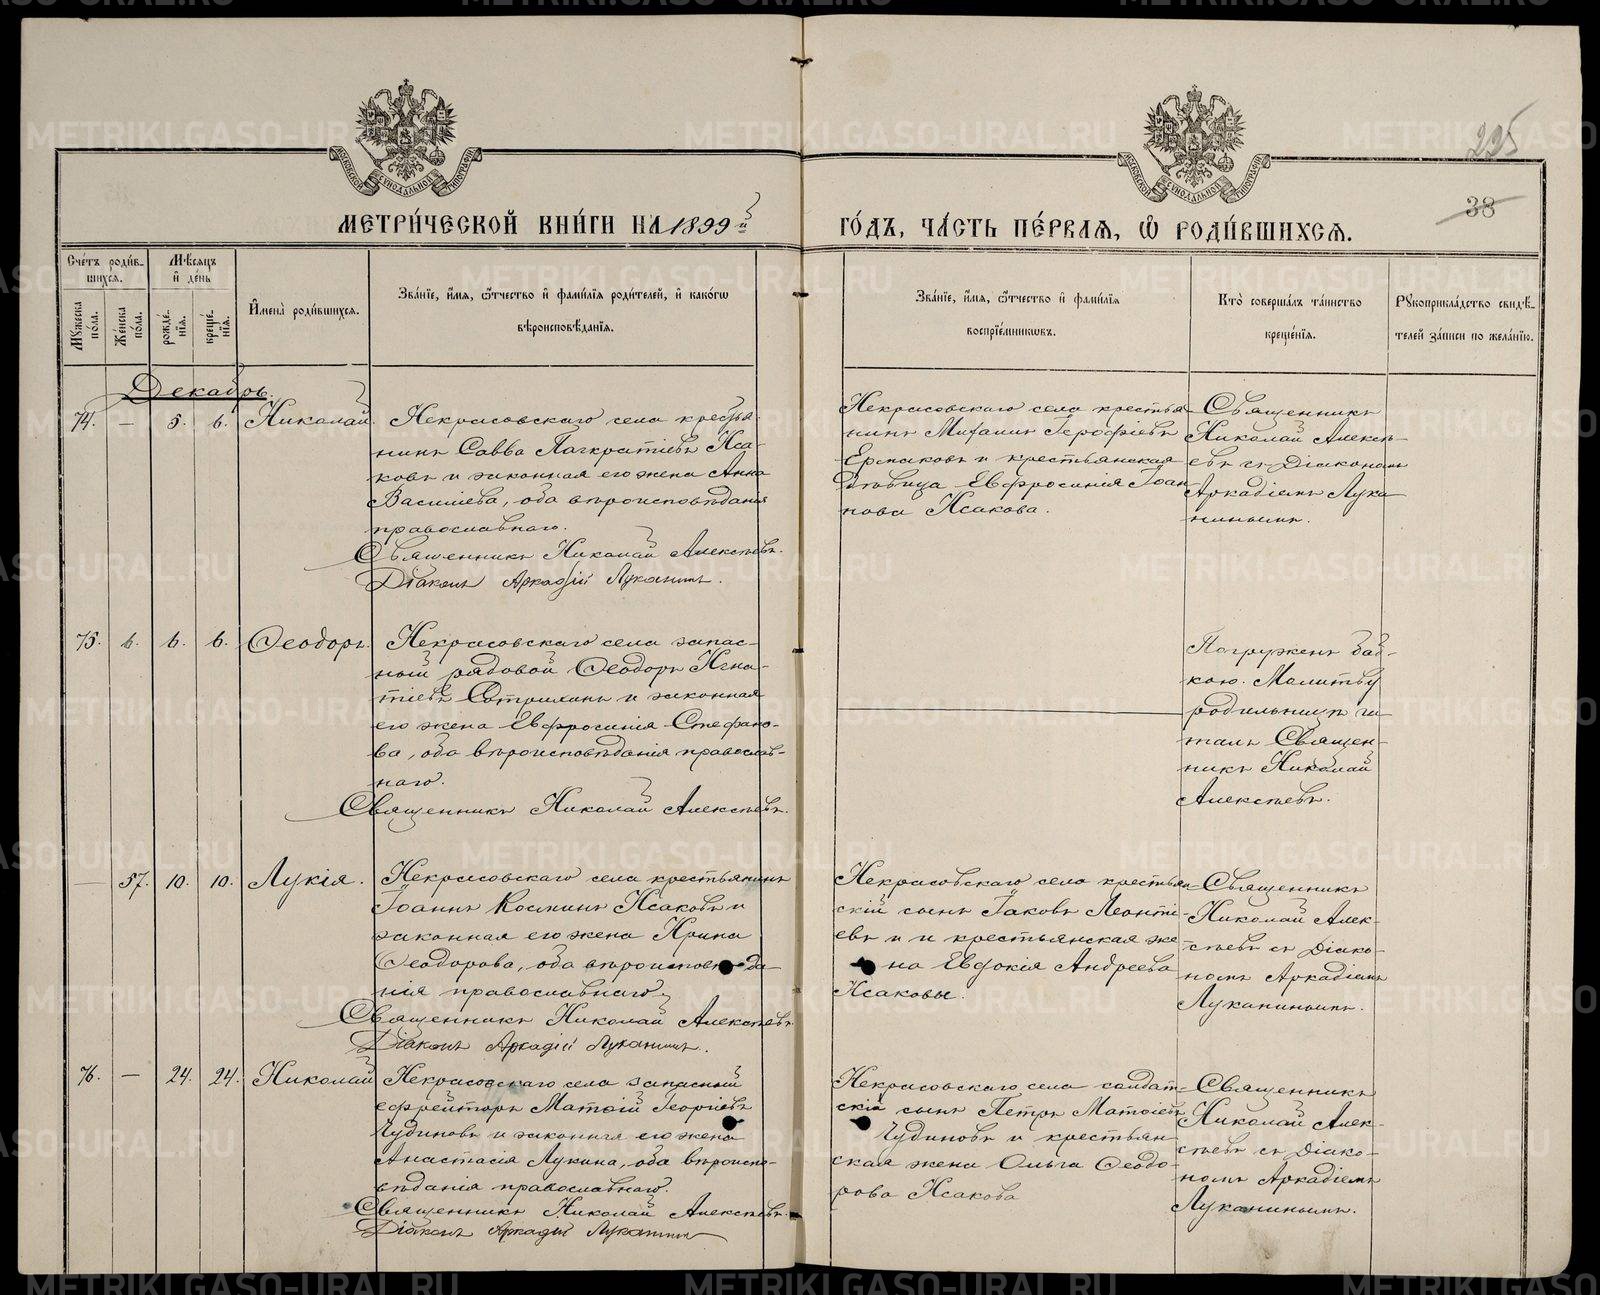 225
38
МЕТРИ́ЧЕСКОЙ КНИ́ГИ НА 1899й
ГО́ДЪ, ЧА́СТЬ ПЕ́РВАѦ, Ѿ РОДИ́ВШИХСѦ.
Сче́тъ роди́в-
шихсѧ.
Мѣ́сѧцъ
и҆ де́нь
Мꙋ́жеска
по́ла.
Же́нска
по́ла.
рожде́-
нїѧ.
креще́-
нїѧ.
И҆мена̀ роди́вшихсѧ.
Зва́нїе, и҆́мѧ, ѻ҆́тчество и҆ фами́лїѧ роди́телей, и҆ како́гѡ
вѣроисповѣ́данїѧ.
Зва́нїе, и҆́мѧ, ѻ҆́тчество и҆ фами́лїѧ
воспрїе́мникѡвъ.
Кто̀ соверша́лъ та́инство
креще́нїѧ.
Рꙋкоприкла́дство свидѣ́-
телей за́писи по жела́нїю.
Декабрь.
74. — 5. 6. Николай.
Некрасовскаго села крестья-
нинъ Савва Панкратіевъ Иса-
ковъ и законная его жена Анна
Василіева, оба вѣроисповѣданія
православнаго.
Священникъ Николай Алексѣевъ.
Діаконъ Аркадій Луканинъ.
Некрасовскаго села крестья-
нинъ Михаилъ Іерофіевъ
Ермаковъ и крестьянская
дѣвица Евфросинія Іоан-
нова Исакова.
Священникъ
Николай Алексѣ-
евъ съ Діакономъ
Аркадіемъ Лука-
нинымъ.
75. 6. 6. 6. Ѳеодоръ.
Некрасовскаго села запас-
ный рядовой Ѳеодоръ Игна-
тіевъ Сотринъ и законная
его жена Евфросинія Стефано-
ва, оба вѣроисповѣданія православ-
наго.
Священникъ Николай Алексѣевъ.
Погруженъ баб-
кою. Молитву
родильницѣ чи-
талъ Священ-
никъ Николай
Алексѣевъ.
— 57. 10. 10. Лукія.
Некрасовскаго села крестьянинъ
Іоаннъ Косминъ Исаковъ и
законная его жена Ирина
Ѳеодорова, оба вѣроисповѣда-
нія православнаго.
Священникъ Николай Алексѣевъ.
Діаконъ Аркадій Луканинъ.
Некрасовскаго села крестьян-
скій сынъ Іаковъ Леонті-
евъ и крестьянская же-
на Евдокія Андреева
Исаковы.
Священникъ
Николай Алек-
сѣевъ съ Діако-
номъ Аркадіемъ
Луканинымъ.
76. — 24. 24. Николай
Некрасовскаго села запасный
ефрейторъ Матѳій Георгіевъ
Чудиновъ и законная его жена
Анастасія Лукина, оба вѣроиспо-
вѣданія православнаго.
Священникъ Николай Алексѣевъ.
Діаконъ Аркадій Луканинъ
Некрасовскаго села солдат-
скій сынъ Петръ Матѳіевъ
Чудиновъ и крестьян-
ская жена Ольга Ѳеодо-
рова Исакова
Священникъ
Николай Алек-
сѣевъ съ Діако-
номъ Аркадіемъ
Луканинымъ.
METRIKI.GASO-URAL.RU